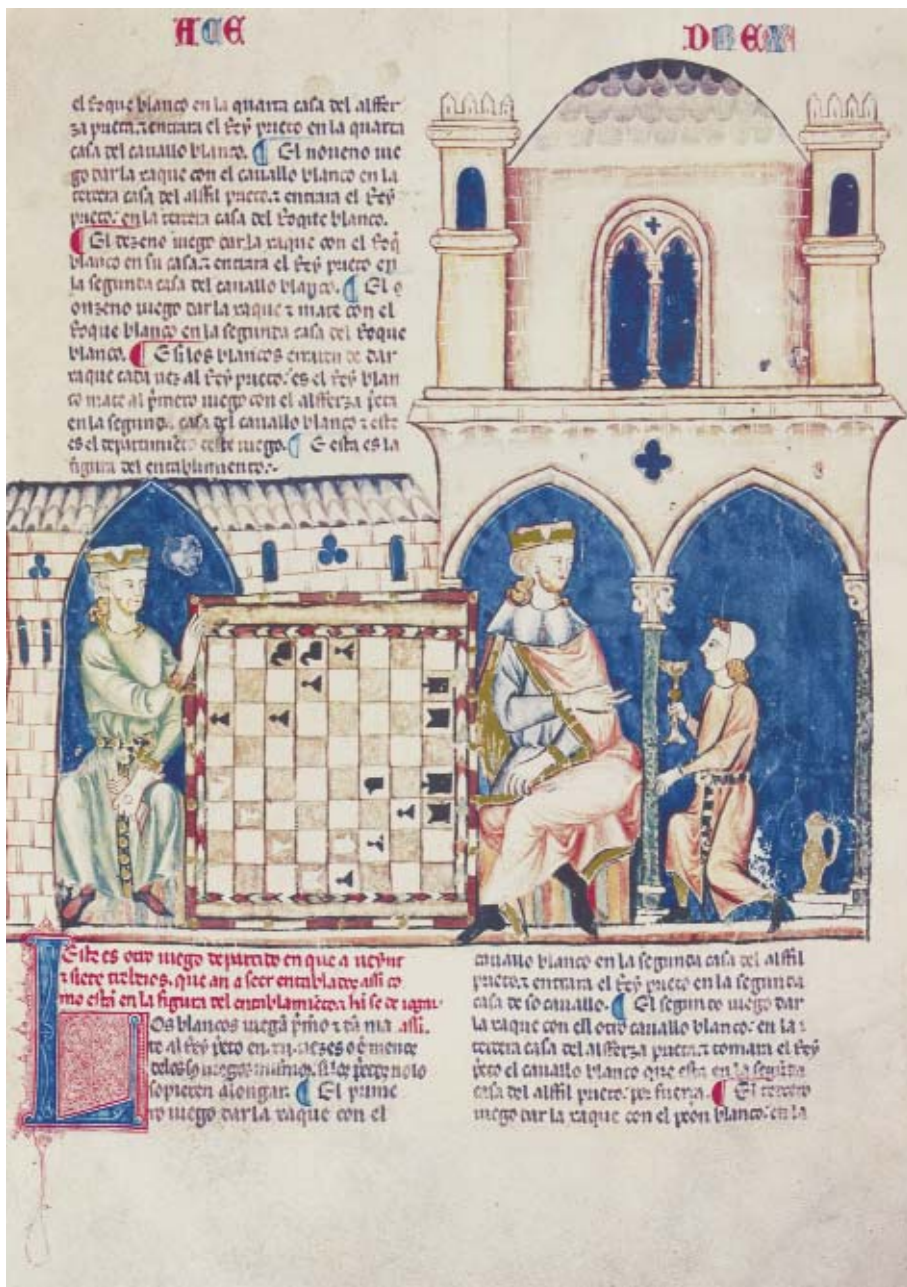 el roque blanco en la quarta casa del alffer
za prieta. τ entrara el Rey prieto en la quarta
casa del cauallo blanco. El noueno iue
go dar la xaque con el cauallo blanco en la
tercera casa del alffil prieto. τ entrara el Rey
prieto. en la tercera casa del Roque blanco.
El dezeno iuego dar la xaque con el Roq̄
blanco en su casa. τ entrara el Rey prieto en
la segunda casa del cauallo blanco. El
onzeno iuego dar la xaque τ mate con el
Roque blanco en la segunda casa del Roque
blanco. E si los blancos erraren de dar
xaque cada uez al Rey prieto. es el Rey blan
co mate al p̄mero iuego con el alfferza p̄eta
en la segunda casa del cauallo blanco τ este
es el departimiēto deste iuego. E esta es la
figura del entablamiento.
Este es otro iuego departido en que a ueynt
τ siete trebeios. que an a seer entablados assi co
mo estā en la figura del entablamiēto. τ hā se de iugar
assi.
Los blancos iuegā p̄mero τ dā ma
te al Rey p̄eto en uezes o ē menos
de los sus iuegos mismos. si los prietos nolo
sopieren alongar. El prime
ro iuego dar la xaque con el
cauallo blanco en la segunda casa del alffil
prieto. τ entrara el Rey prieto en la segunda
casa de so cauallo. El segundo iuego dar
la xaque con ell otro cauallo blanco. en la
tercera casa del alfferza prieta. τ tomara el Rey
p̄eto el cauallo blanco que esta en la segunda
casa del alffil prieto. por fuerça. El tercero
iuego dar la xaque con el peon blanco. en la